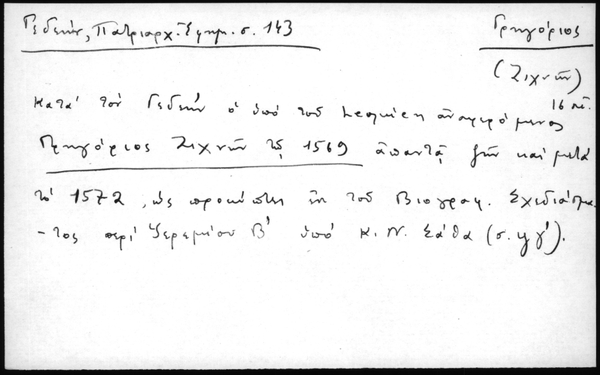 Γεδεών, Πατριαρχ. Εφημ. σ. 143
Γρηγόριος
(Ζιχνῶν)
16 αἰ.
κατά τόν Γεδεών ὁ ὑπό τοῦ Lequien ἀναφερόμενος
Γρηγόριος Ζιχνῶν τῷ 1569 ἀπαντᾷ ζῶν καί μετά
τό 1572, ὡς προκύπτει ἐκ τοῦ Βιογραφ. Σχεδιάσμα
-τος περί Ἱερεμίου Β' ὑπό Κ. Ν. Σάθα (σ. ϟγ').